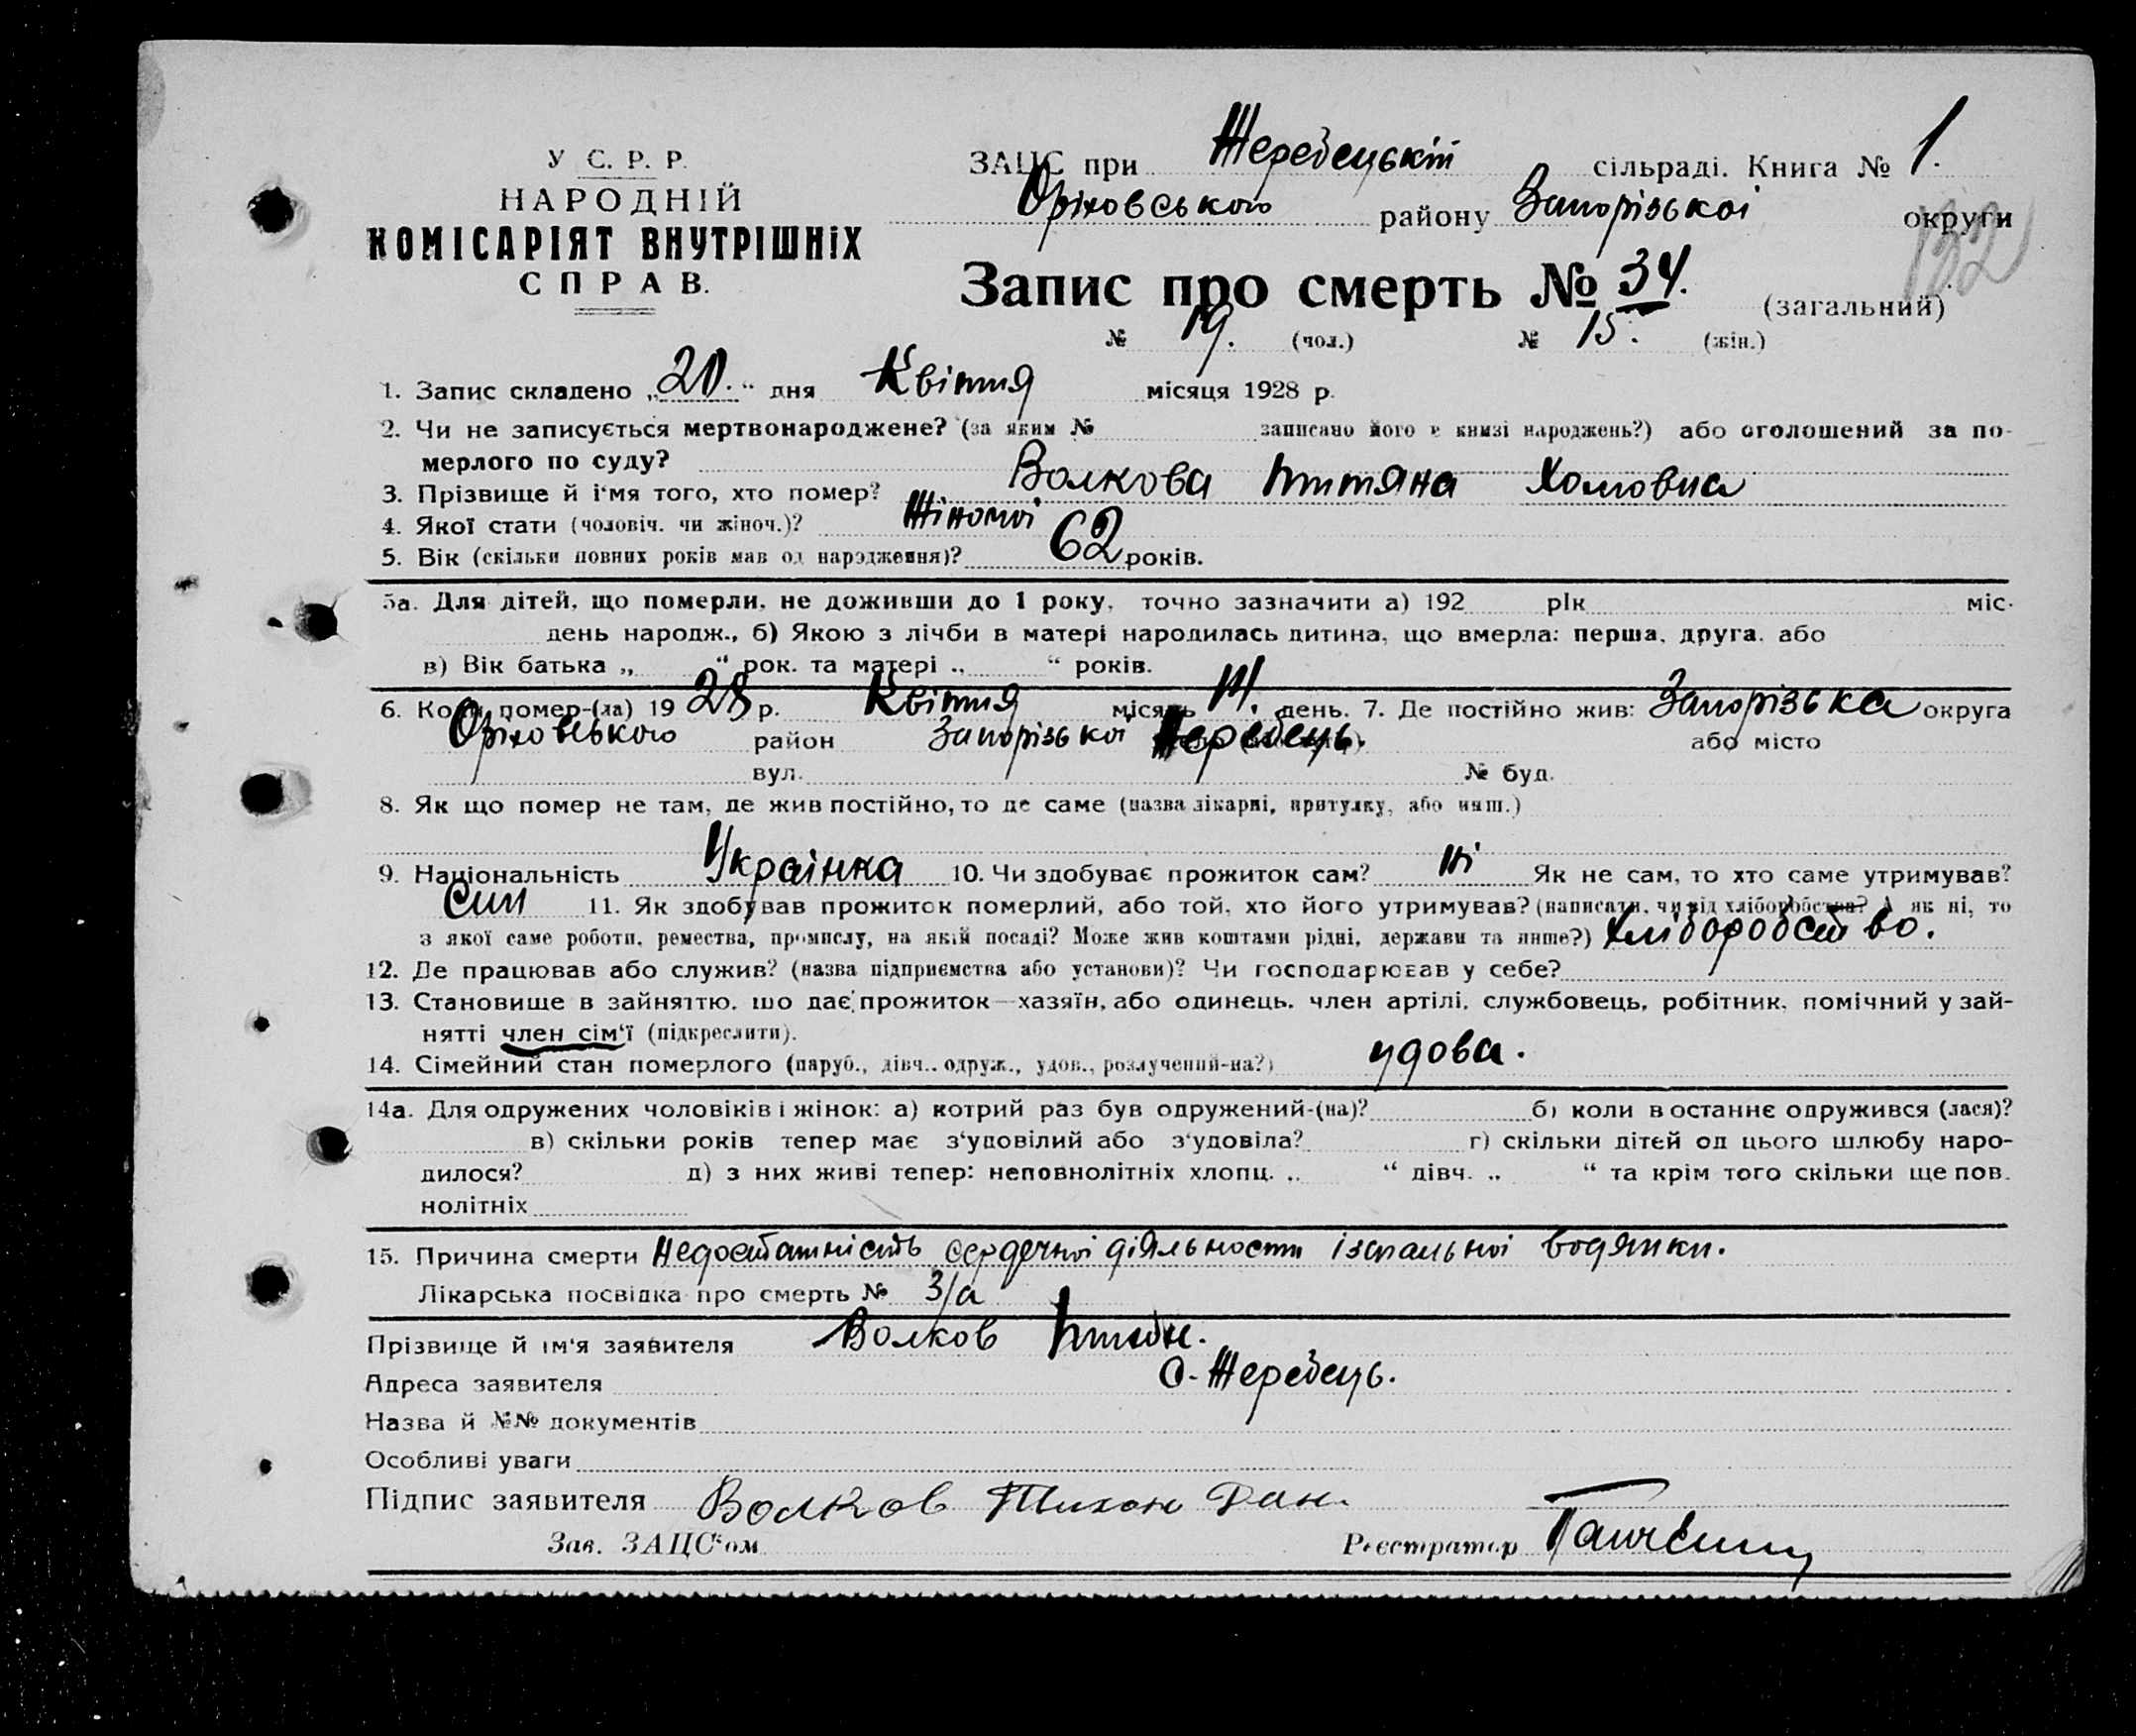 У С. Р. Р.
НАРОДНІЙ
КОМІСАРІЯТ ВНУТРІШНІХ
СПРАВ.
ЗАЦС при Жеребецькій сільраді. Книга № 1.
Оріховського району Запорізькоі округи
132
Запис про смерть № 34. (загальний)
№ 19. (чол.) № 15. (жін.)
1. Запис складено „20." дня Квітня місяця 1928 р.
2. Чи не записується мертвонароджене? (за яким № записано його в книзі народжень?) або оголошений за по-
мерлого по суду?
3. Прізвище й і'мя того, хто помер? Волкова Хомовна
4. Якої стати (чоловіч. чи жіноч.)? Жіночоі
5. Вік (скільки повних років мав од народження)? 62 років.
5а. Для дітей, що померли, не доживши до 1 року, точно зазначити а) 192 рік міс.
день народж., б) Якою з лічби в матері народилась дитина, що вмерла: перша, друга, або
в) Вік батька „ " рок. та матері „ " років.
6. Коли помер-(ла) 1928 р. Квітня місяць день. 7. Де постійно жив: Запорізька округа
Оріховського район Запорізькоі Жеребець. або місто
вул. № буд.
8. Як що помер не там, де жив постійно, то де саме (назва лікарні, притулку, або инш.)
9. Національність Украінка 10. Чи здобуває прожиток сам? ні Як не сам, то хто саме утримував?
Син 11. Як здобував прожиток померлий, або той, хто його утримував? (написати, чи від хліборобства? А як ні, то
з якої саме роботи, ремества, промислу, на якій посаді? Може жив коштами рідні, держави та инше?) Хліборобство.
12. Де працював або служив? (назва підприємства або установи)? Чи господарював у себе?
13. Становище в зайняттю, що дає прожиток—хазяїн, або одинець, член артілі, службовець, робітник, помічний у зай-
нятті член сім'ї (підкреслити).
14. Сімейний стан померлого (паруб., дівч., одруж., удов., розлучений-на?) удова.
14а. Для одружених чоловіків і жінок: а) котрий раз був одружений-(на)? б) коли востаннє одружився (лася)?
в) скільки років тепер має з'удовілий або з'удовіла? г) скільки дітей од цього шлюбу наро-
дилося? д) з них живі тепер: неповнолітніх хлопц. „ " дівч. „ " та крім того скільки ще пов.
нолітніх
15. Причина смерти Недостатність сердечноі діяльности водянки.
Лікарська посвідка про смерть № 3/а
Прізвище й ім'я заявителя Волков
Адреса заявителя С. Жеребець.
Назва й №№ документів
Особливі уваги
Підпис заявителя Волков Тихон Дан.
Зав. ЗАЦС'ом Реєстратор